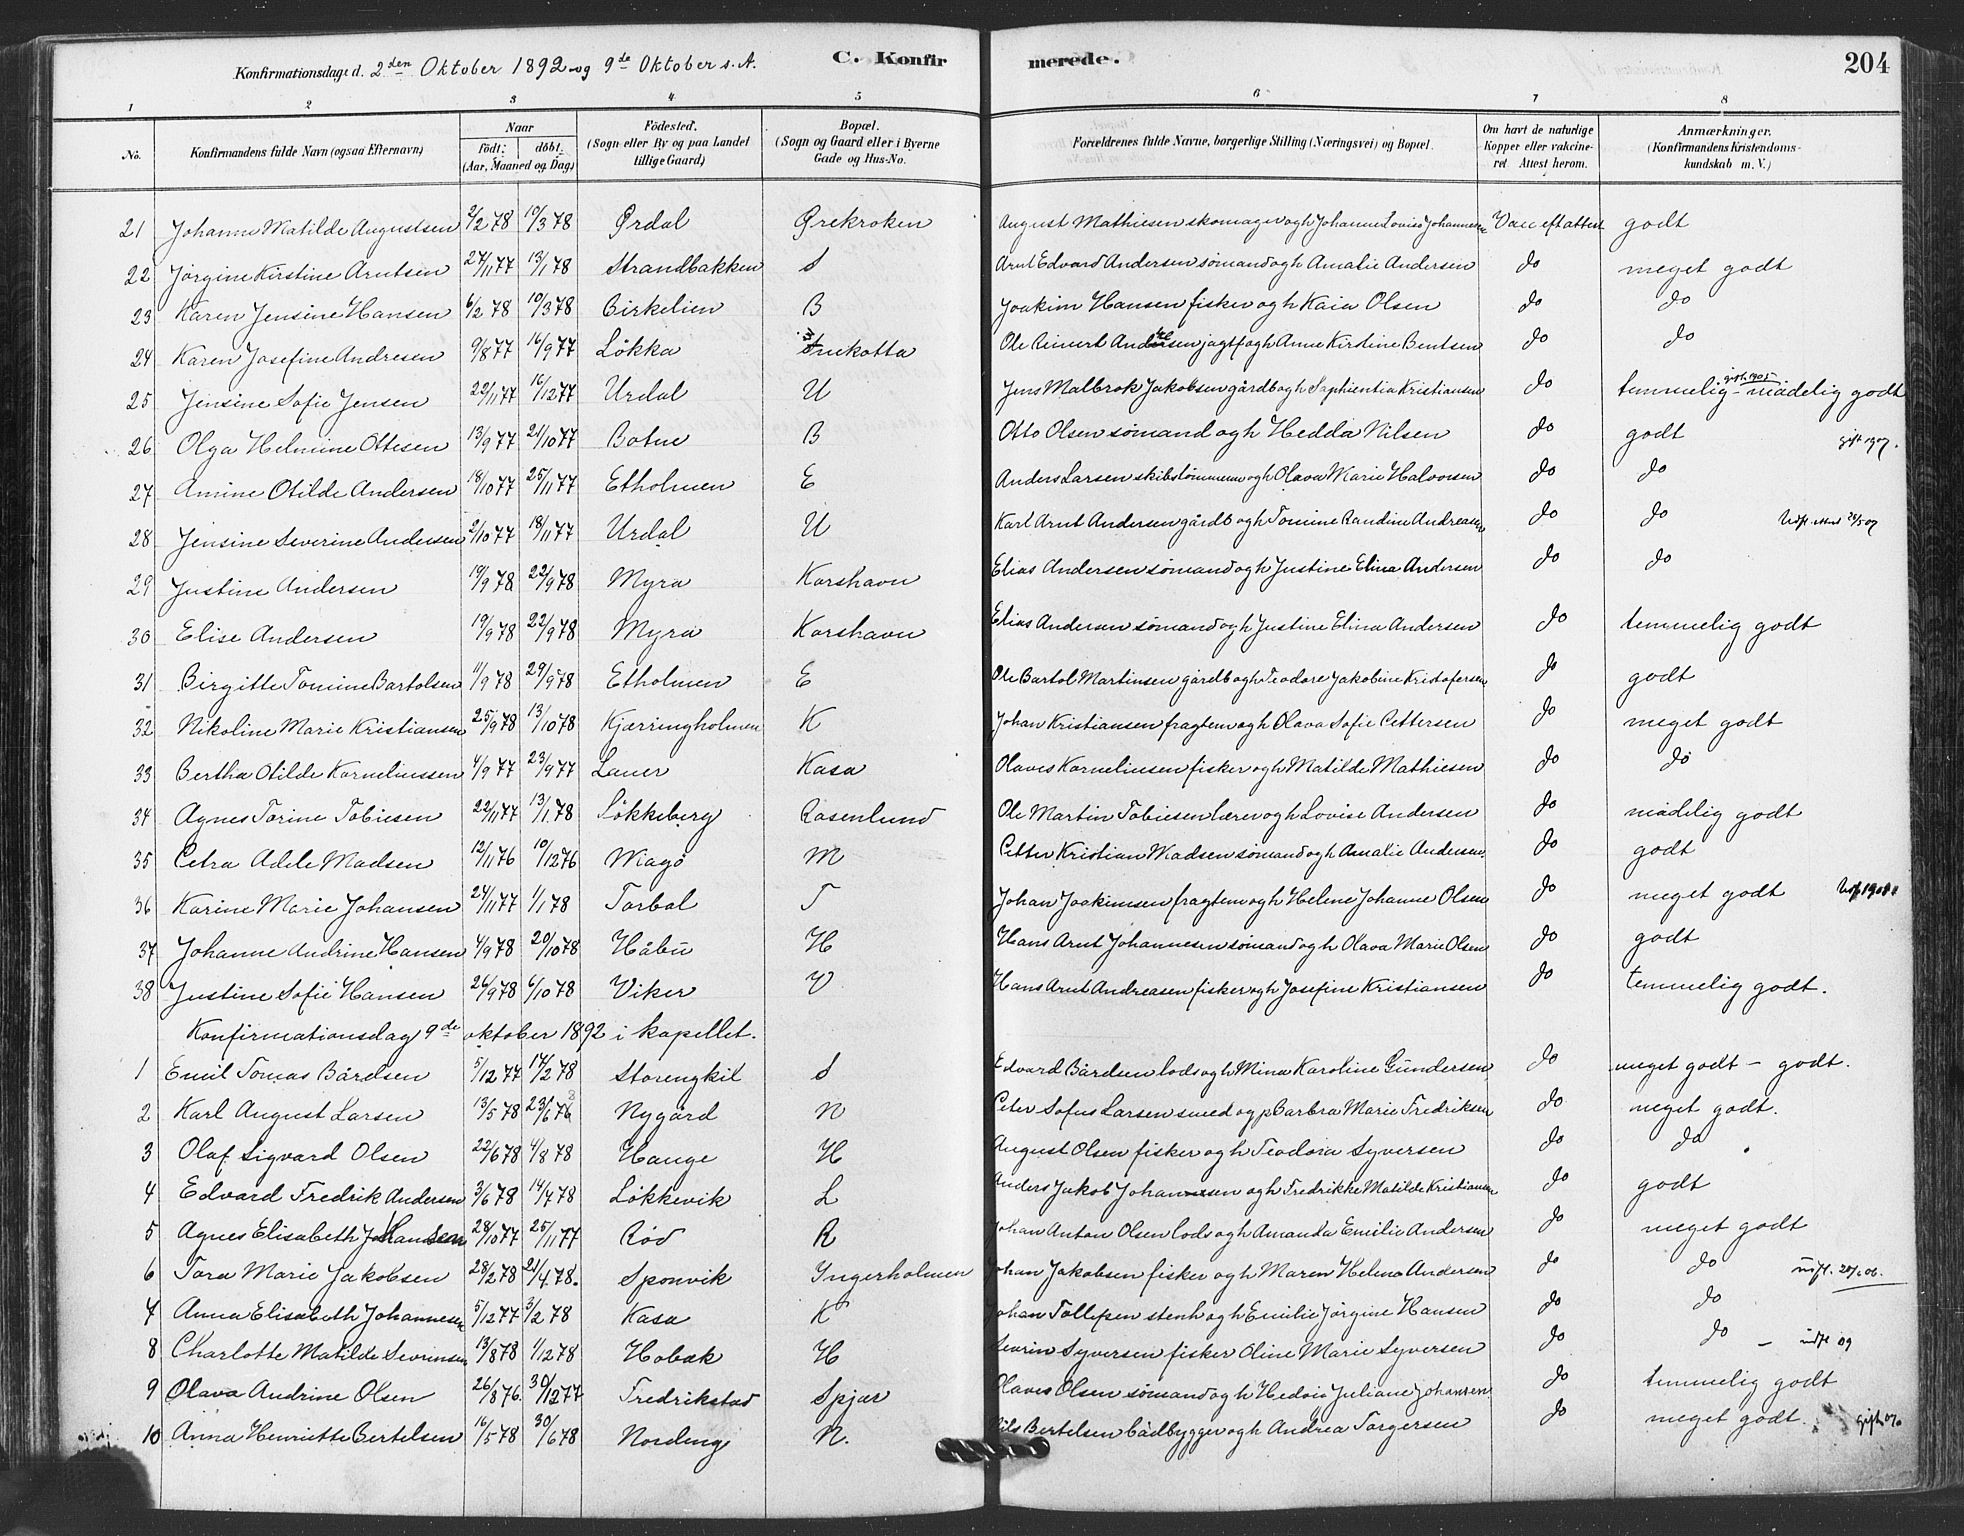 Konfirmationsdage d. 2den Oktober 1892 og 9de Oktober s. A. C. Konfirmerede. 204
1 2 3 4 5 6 7 8
No. Konfirmandens fulde Navn (ogsaa Efternavn) Naar født: døbt: (Aar, Maaned og Dag) Fødested. (Sogn eller By og paa Landet tillige Gaard) Bopæl. (Sogn og Gaard eller i Byerne Gade og Hus-No. Forældrenes fulde Navne, borgerlige Stilling (Næringsvei) og Bopæl. Om havt de naturlige Kopper eller vakcineret. Attest herom. Anmærkninger. (Konfirmandens Kristendomskundskab m. V.)
21 Johanne Matilde Augustsen 2/2 78 10/3 78 Ørdal Ørekroken August Mathiesen skomager og h Johanne Lovise Johannesen Vacc eft attest godt
22 Jørgine Kirstine Arntsen 27/11 77 13/1 78 Strandbakken S Arnt Edvard Andersen sømand og h Amalie Andersen do meget godt
23 Karen Jensine Hansen 6/2 78 10/3 78 Birkelien B Joakim Hansen fisker og h Kaia Olsen do do
24 Karen Josefine Andresen 9/8 77 16/9 77 Løkka Ole Reinert Andresen jagtf og h Anne Kirstine Bentsen do do
25 Jensine Sofie Jensen 22/11 77 16/12 77 Urdal U Jens Malbrok Jakobsen gårdb og h Saphientia Kristiansen do temmelig - mådelig godt gift 1905
26 Olga Helmine Ottesen 13/9 77 21/10 77 Botne B Otto Olsen sømand og h Hedda Nilsen do godt gift 1907.
27 Amine Otilde Andersen 18/10 77 25/11 77 Etholmen E Anders Larsen skibstømmerm og h Olava Marie Halvorsen do do
28 Jensine Severine Andersen 2/10 77 18/11 77 Urdal U Karl Arnt Andersen gårdb og h Tomine Randine Andreasen do do
29 Justine Andersen 19/9 78 22/9 78 Myra Korshavn Elias Andersen sømand og h Justine Elina Andersen do do
30 Elise Andersen 19/9 78 22/9 78 Myra Korshavn Elias Andersen sømand og h Justine Elina Andersen do temmelig godt
31 Birgitte Tomine Bartolsen 11/9 78 29/9 78 Etholmen E Ole Bartol Martinsen gårdb og h Teodore Jakobine Kristofersen do godt
32 Nikoline Marie Kristiansen 25/9 78 13/10 78 Kjærringholmen K Johan Kristiansen fragtem og h Olava Sofie Pettersen do meget godt
33 Bertha Otilde Korneliussen 4/9 77 23/9 77 Lauer Kasa Olaves Korneliusen fisker og h Matilde Mathiesen do do
34 Agnes Torine Tobiesen 22/11 77 13/1 78 Løkkeberg Rosenlund Ole Martin Tobiesen lærer og h Lovise Andersen do mådelig godt
35 Petra Adele Madsen 12/11 76 10/12 76 Magø M Petter Kristian Madsen sømand og h Amalie Andersen do godt
36 Karine Marie Johansen 24/11 77 1/1 78 Torbal T Johan Joakimsen fragtem og h Helene Johanne Olsen do meget godt
37 Johanne Andrine Hansen 4/9 78 20/10 78 Håbu H Hans Arnt Johannesen sømand og h Olava Marie Olsen do godt
38 Justine Sofie Hansen 26/9 78 6/10 78 Viker V Hans Arnt Andreasen fisker og h Josefine Kristiansen do temmelig godt.
Konfirmationsdag 9de oktober 1892 i kapellet.
1 Emil Tomas Bårdsen 5/12 77 17/2 78 Storengkil S Edvard Bårdsen lods og h Mina Karoline Gundersen do meget godt - godt.
2 Karl August Larsen 13/5 78 23/6 78 Nygård N Peter Sofus Larsen smed og p Barbra Marie Fredriksen do meget godt.
3 Olaf Sigvard Olsen 22/6 78 4/8 78 Hauge H August Olsen fisker og h Teodora Syversen do do
4 Edvard Fredrik Andersen 3/6 78 14/7 78 Løkkevik L Anders Jakob Johannesen og h Fredrikke Matilde Kristiansen do godt
5 Agnes Elisabeth Johansen 28/10 77 25/11 77 Rød R Johan Anton Olsen lods og h Amanda Emilie Andersen do meget godt
6 Tora Marie Jakobsen 28/2 78 21/4 78. Sponvik Ingerholmen Johan Jakobsen fisker og h Maren Helene Andersen do do
7 Anna Elisabeth Johannesen 5/12 77 3/2 78 Kasa K Johan Tollefsen stenh og h Emilie Jørgine Hansen do do
8 Charlotte Matilde Sevrinsen 13/8 78 1/12 78 Hobæk H Sevrin Syversen fisker Oline Marie Syversen do do - udfl 09
9 Olava Andrine Olsen 26/8 76. 30/12 77 Fredrikstad Spjær Olaves Olsen sømand og h Hedvig Juliane Johansen do temmelig godt
10 Anna Henriette Bertelsen 16/5 78 30/6 78 Nordeng N. Nils Bertelsen bådbygger og h Andrea Torgersen do meget godt.